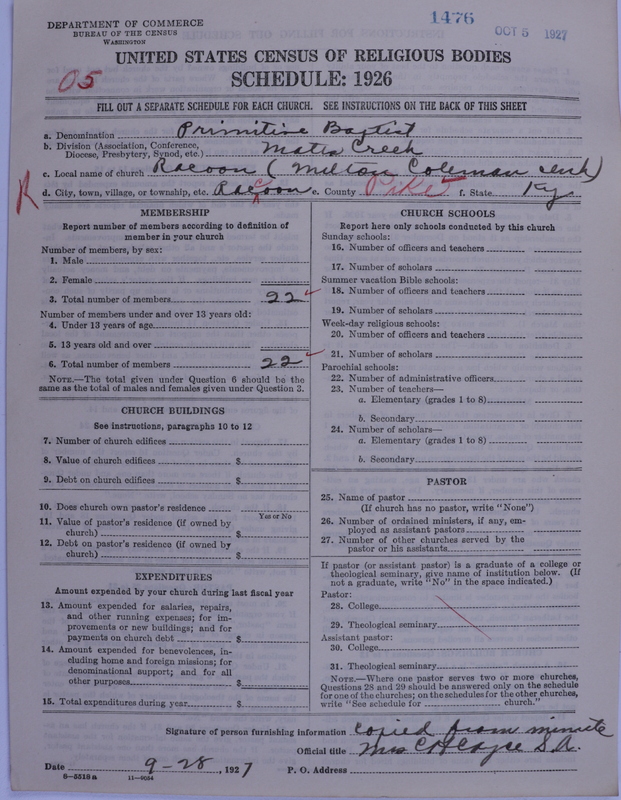 1476
OCT 5 1927
DEPARTMENT OF COMMERCE
BUREAU OF THE CENSUS
WASHINGTON
UNITED STATES CENSUS OF RELIGIOUS BODIES
05
SCHEDULE: 1926
FILL OUT A SEPARATE SCHEDULE FOR EACH CHURCH. SEE INSTRUCTIONS ON THE BACK OF THIS SHEET
a. Denomination Primitive Baptist
b. Division (Association, Conference, Diocese, Presbytery, Synod, etc.) Mates Creek
c. Local name of church Racoon (Milton Coleman clerk)
R
d. City, town, village, or township, etc. Raccoon e. County Pike f. State Ky.
MEMBERSHIP
Report number of members according to definition of
member in your church
Number of members, by sex:
1. Male
2. Female
3. Total number of members 22
Number of members under and over 13 years old:
4. Under 13 years of age
5. 13 years old and over
6. Total number of members 22
NOTE.—The total given under Question 6 should be the
same as the total of males and females given under Question 3.
CHURCH BUILDINGS
See instructions, paragraphs 10 to 12
7. Number of church edifices
8. Value of church edifices $
9. Debt on church edifices $
10. Does church own pastor's residence
Yes or No
11. Value of pastor's residence (if owned by
church) $
12. Debt on pastor's residence (if owned by
church) $
EXPENDITURES
Amount expended by your church during last fiscal year
13. Amount expended for salaries, repairs,
and other running expenses; for im-
provements or new buildings; and for
payments on church debt $
14. Amount expended for benevolences, in-
cluding home and foreign missions; for
denominational support; and for all
other purposes $
15. Total expenditures during year $
CHURCH SCHOOLS
Report here only schools conducted by this church
Sunday schools:
16. Number of officers and teachers
17. Number of scholars
Summer vacation Bible schools:
18. Number of officers and teachers
19. Number of scholars
Week-day religious schools:
20. Number of officers and teachers
21. Number of scholars
Parochial schools:
22. Number of administrative officers
23. Number of teachers—
a. Elementary (grades 1 to 8)
b. Secondary
24. Number of scholars—
a. Elementary (grades 1 to 8)
b. Secondary
PASTOR
25. Name of pastor
(If church has no pastor, write "None")
26. Number of ordained ministers, if any, em-
ployed as assistant pastors
27. Number of other churches served by the
pastor or his assistants
If pastor (or assistant pastor) is a graduate of a college or
theological seminary, give name of institution below. (If
not a graduate, write "No" in the space indicated.)
Pastor:
28. College
29. Theological seminary
Assistant pastor:
30. College
31. Theological seminary
NOTE.—Where one pastor serves two or more churches,
Questions 28 and 29 should be answered only on the schedule
for one of the churches; on the schedules for the other churches,
write "See schedule for church."
Signature of person furnishing information copied from minute
Official title Mrs S.A.
Date 9-28, 1927 P. O. Address
8-5519a 11-9034